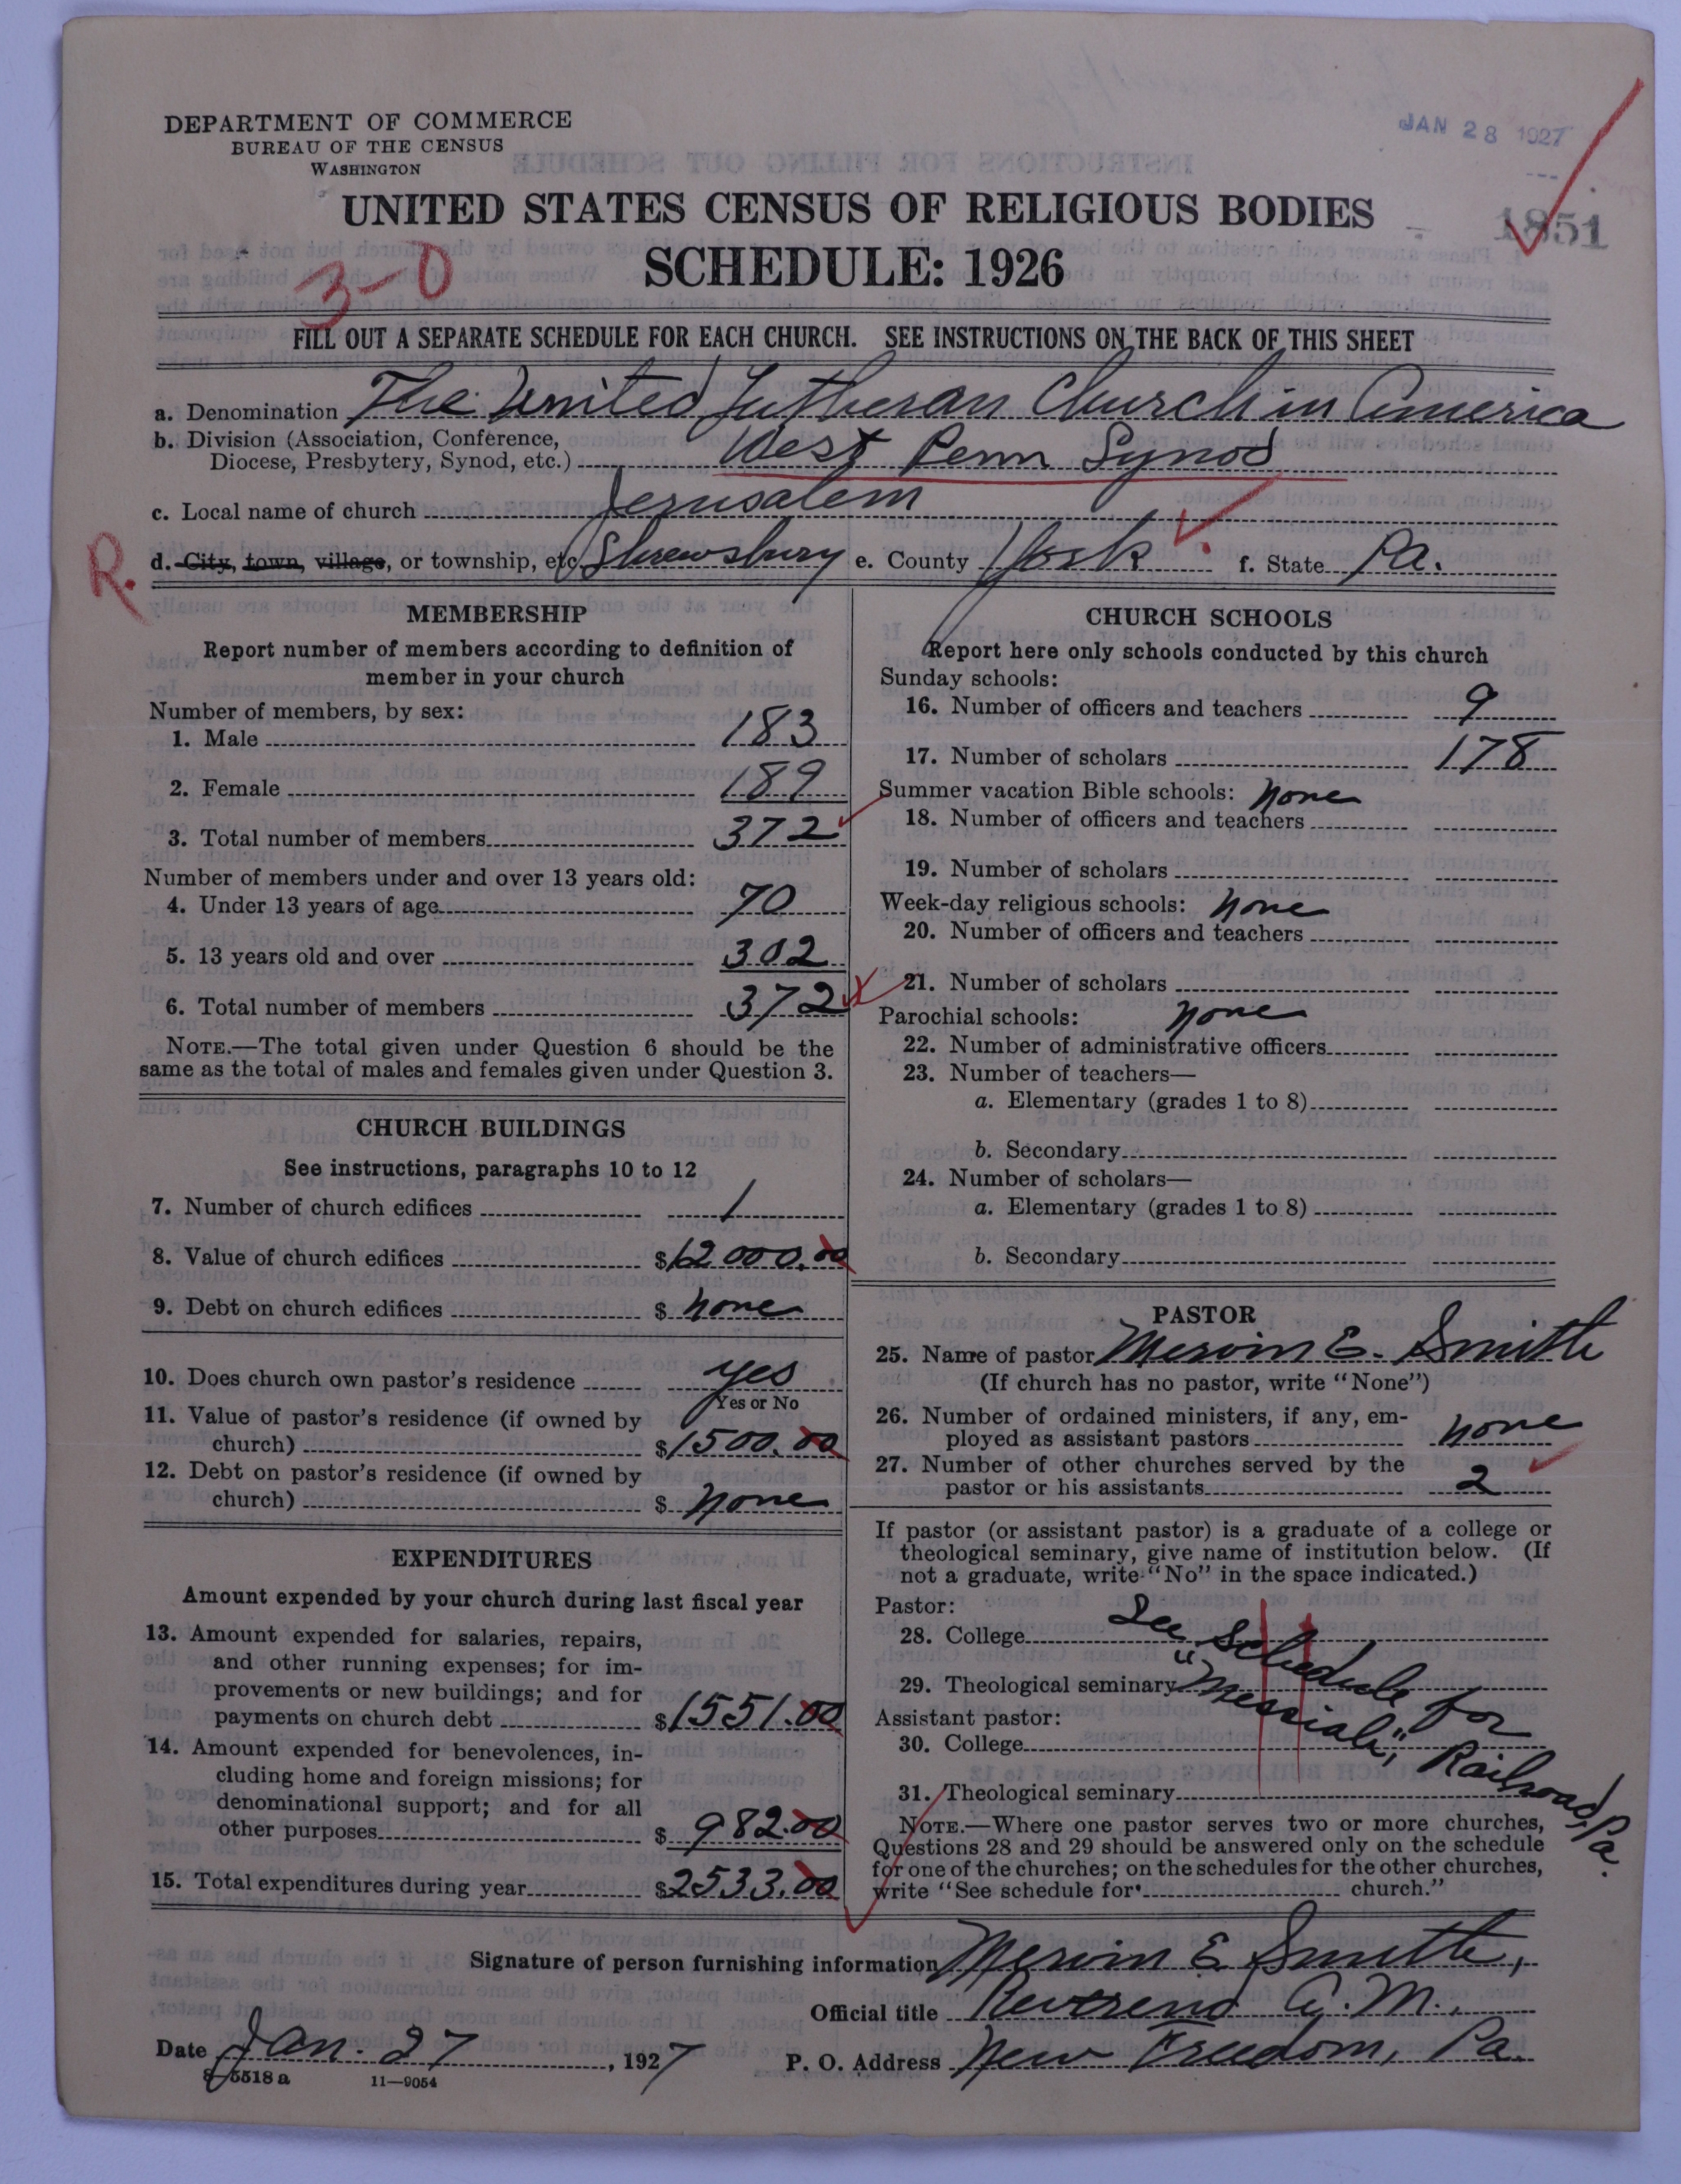 DEPARTMENT OF COMMERCE
BUREAU OF THE CENSUS
WASHINGTON
JAN 28 1927
UNITED STATES CENSUS OF RELIGIOUS BODIES
1851
SCHEDULE: 1926
3-0
FILL OUT A SEPARATE SCHEDULE FOR EACH CHURCH. SEE INSTRUCTIONS ON THE BACK OF THIS SHEET
a. Denomination The United Lutheran Church in America
b. Division (Association, Conference,
Diocese, Presbytery, Synod, etc.) West Penn Synod
c. Local name of church Jerusalem
R. d. City, town, village, or township, etc. Shrewsbury e. County York f. State Pa.
MEMBERSHIP
Report number of members according to definition of
member in your church
Number of members, by sex:
1. Male 183
2. Female 189
3. Total number of members 372
Number of members under and over 13 years old:
4. Under 13 years of age 70
5. 13 years old and over 302
6. Total number of members 372
NOTE.—The total given under Question 6 should be the
same as the total of males and females given under Question 3.
CHURCH BUILDINGS
See instructions, paragraphs 10 to 12
7. Number of church edifices 1
8. Value of church edifices $12000.00
9. Debt on church edifices $ none
10. Does church own pastor's residence yes
Yes or No
11. Value of pastor's residence (if owned by
church) $1500.00
12. Debt on pastor's residence (if owned by
church) $ none
EXPENDITURES
Amount expended by your church during last fiscal year
13. Amount expended for salaries, repairs,
and other running expenses; for im-
provements or new buildings; and for
payments on church debt $1551.00
14. Amount expended for benevolences, in-
cluding home and foreign missions; for
denominational support; and for all
other purposes $ 982.00
15. Total expenditures during year $2533.00
CHURCH SCHOOLS
Report here only schools conducted by this church
Sunday schools:
16. Number of officers and teachers 9
17. Number of scholars 178
Summer vacation Bible schools: none
18. Number of officers and teachers
19. Number of scholars
Week-day religious schools: none
20. Number of officers and teachers
21. Number of scholars
Parochial schools: none
22. Number of administrative officers
23. Number of teachers—
a. Elementary (grades 1 to 8)
b. Secondary
24. Number of scholars—
a. Elementary (grades 1 to 8)
b. Secondary
PASTOR
25. Name of pastor Mervin E. Smith
(If church has no pastor, write "None")
26. Number of ordained ministers, if any, em-
ployed as assistant pastors none
27. Number of other churches served by the
pastor or his assistants 2
If pastor (or assistant pastor) is a graduate of a college or
theological seminary, give name of institution below. (If
not a graduate, write "No" in the space indicated.)
Pastor:
28. College See Schedule for
29. Theological seminary "Messiah", Railroad, Pa.
Assistant pastor:
30. College
31. Theological seminary
NOTE.—Where one pastor serves two or more churches,
Questions 28 and 29 should be answered only on the schedule
for one of the churches; on the schedules for the other churches,
write "See schedule for church."
Signature of person furnishing information Mervin E Smith,
Official title Reverend A.M.,
Date Jan. 27, 1927 P. O. Address New Freedom, Pa.
8-5518 a 11—9054